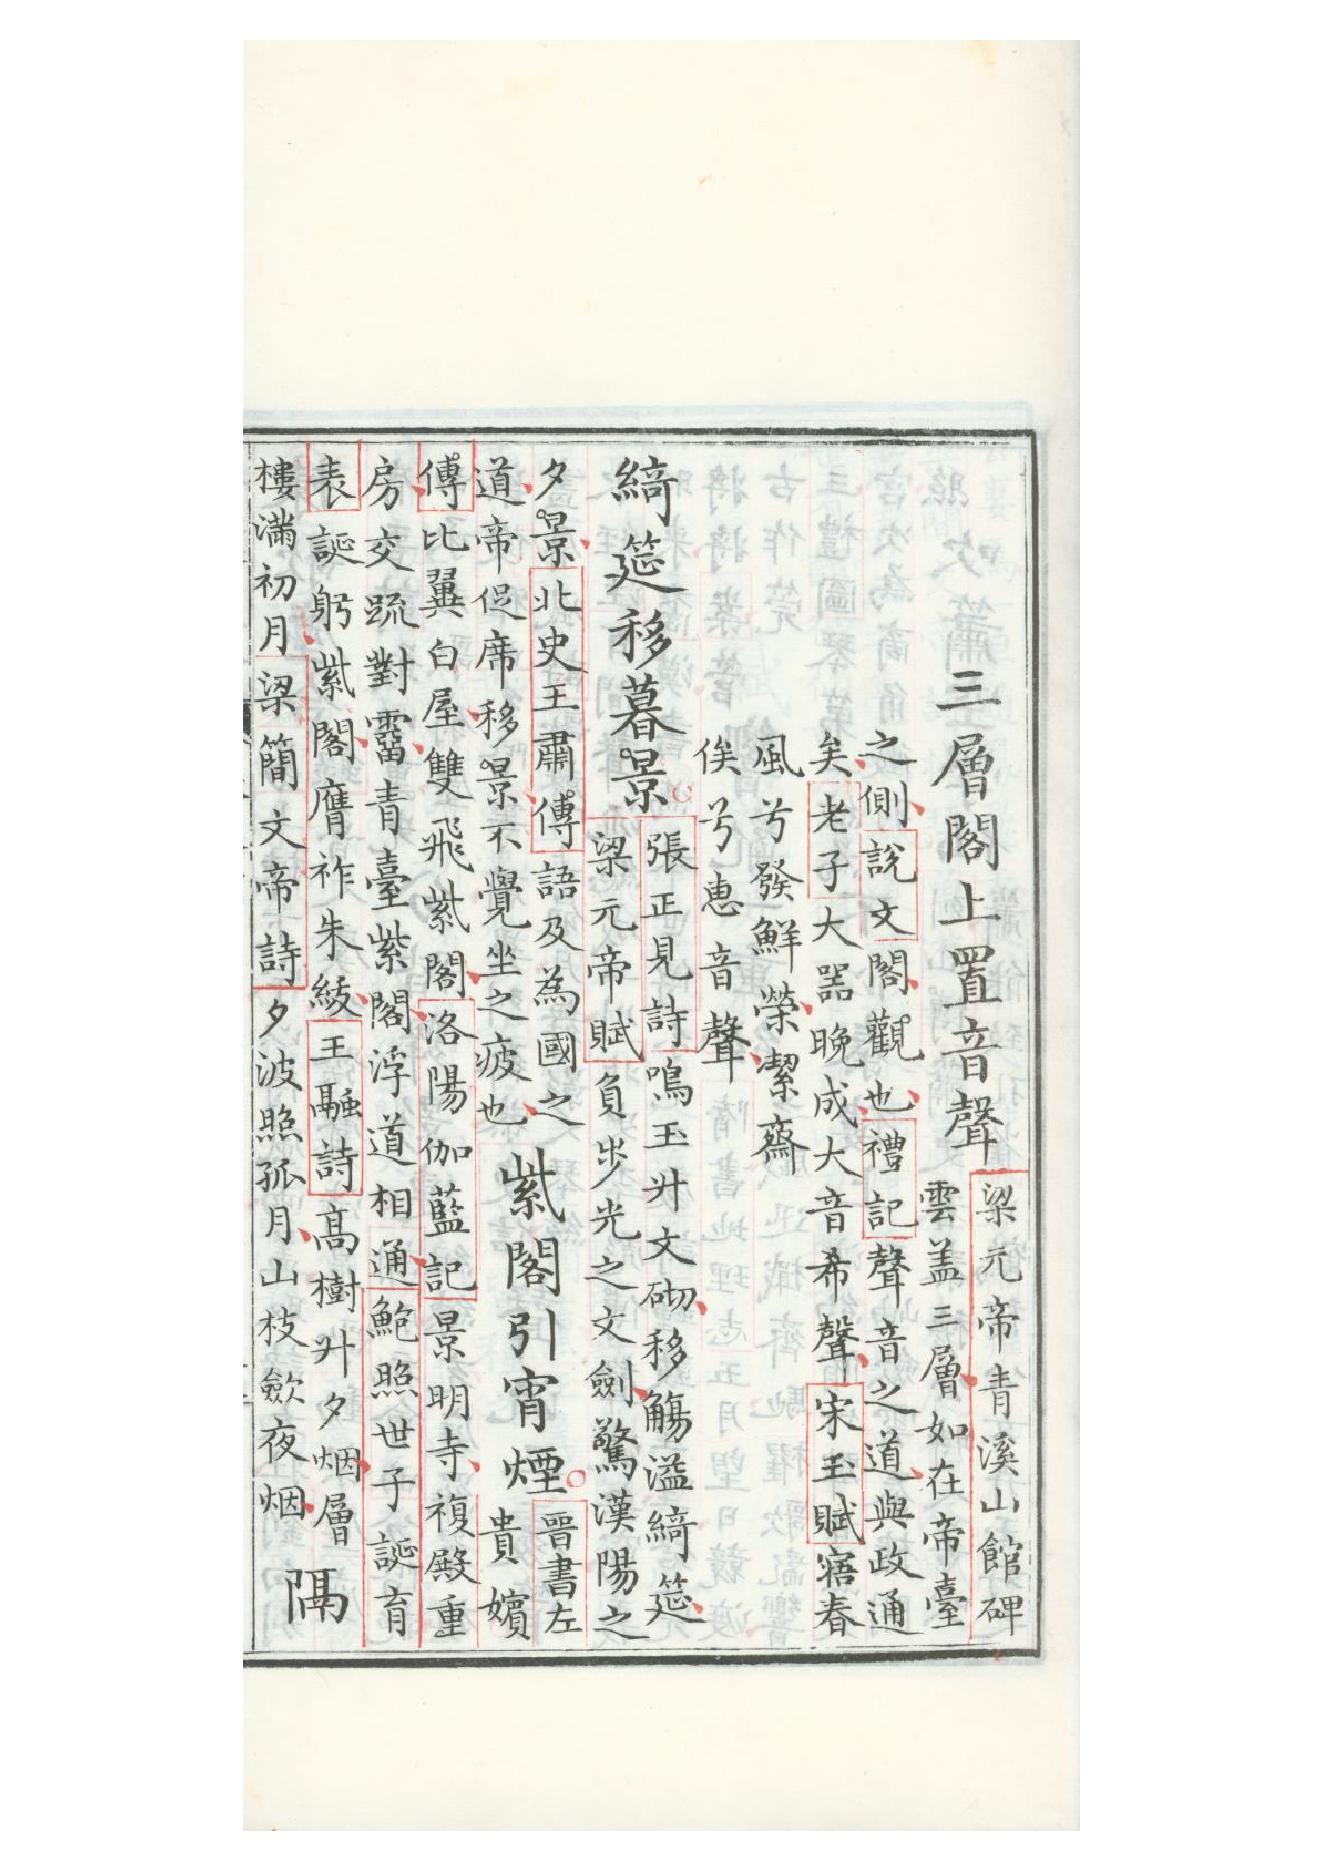 三層閣上置音聲
梁元帝青溪山館碑
雲盖三層如在帝臺
之側說文閣觀也禮記聲音之道與政通
矣老子大噐晚成大音希聲宋玉賦寤春
風兮發鮮榮潔齋
俟兮惠音聲
綺筵移暮景
張正見詩鳴玉升文砌移觴溢綺筵
梁元帝賦負步光之文劍驚漢陽之
夕景北史王肅傳語及為國之
道帝促席移景不覺坐之疲也
紫閣引宵煙
晉書左
貴嬪
傳比翼白屋雙飛紫閣洛陽伽藍記景明寺複殿重
房交疏對霤青臺紫閣浮道相通鮑照世子誕育
表誕躬紫閣膺祚朱綬王融詩高樹升夕烟層
樓滿初月梁簡文帝詩夕波照孤月山枝歛夜烟
隔